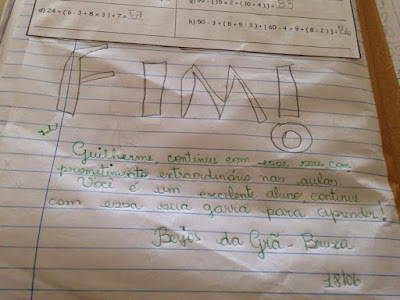 d) 24 + ( 6 : 3 + 8 x 3 ) + 7 =
h) 90 - 3 + ( 8 + 9 : 3 ) + [ 60 - 4 + 9 + ( 8 : 2 ) ] =
FIM!
Guilherme, continue com esse, seu com
prometimento extraordinário nas aulas.
Você é um excelente aluno, continue
com essa sua garra para aprender!
Beijos da Grã-Bruxa
18/06